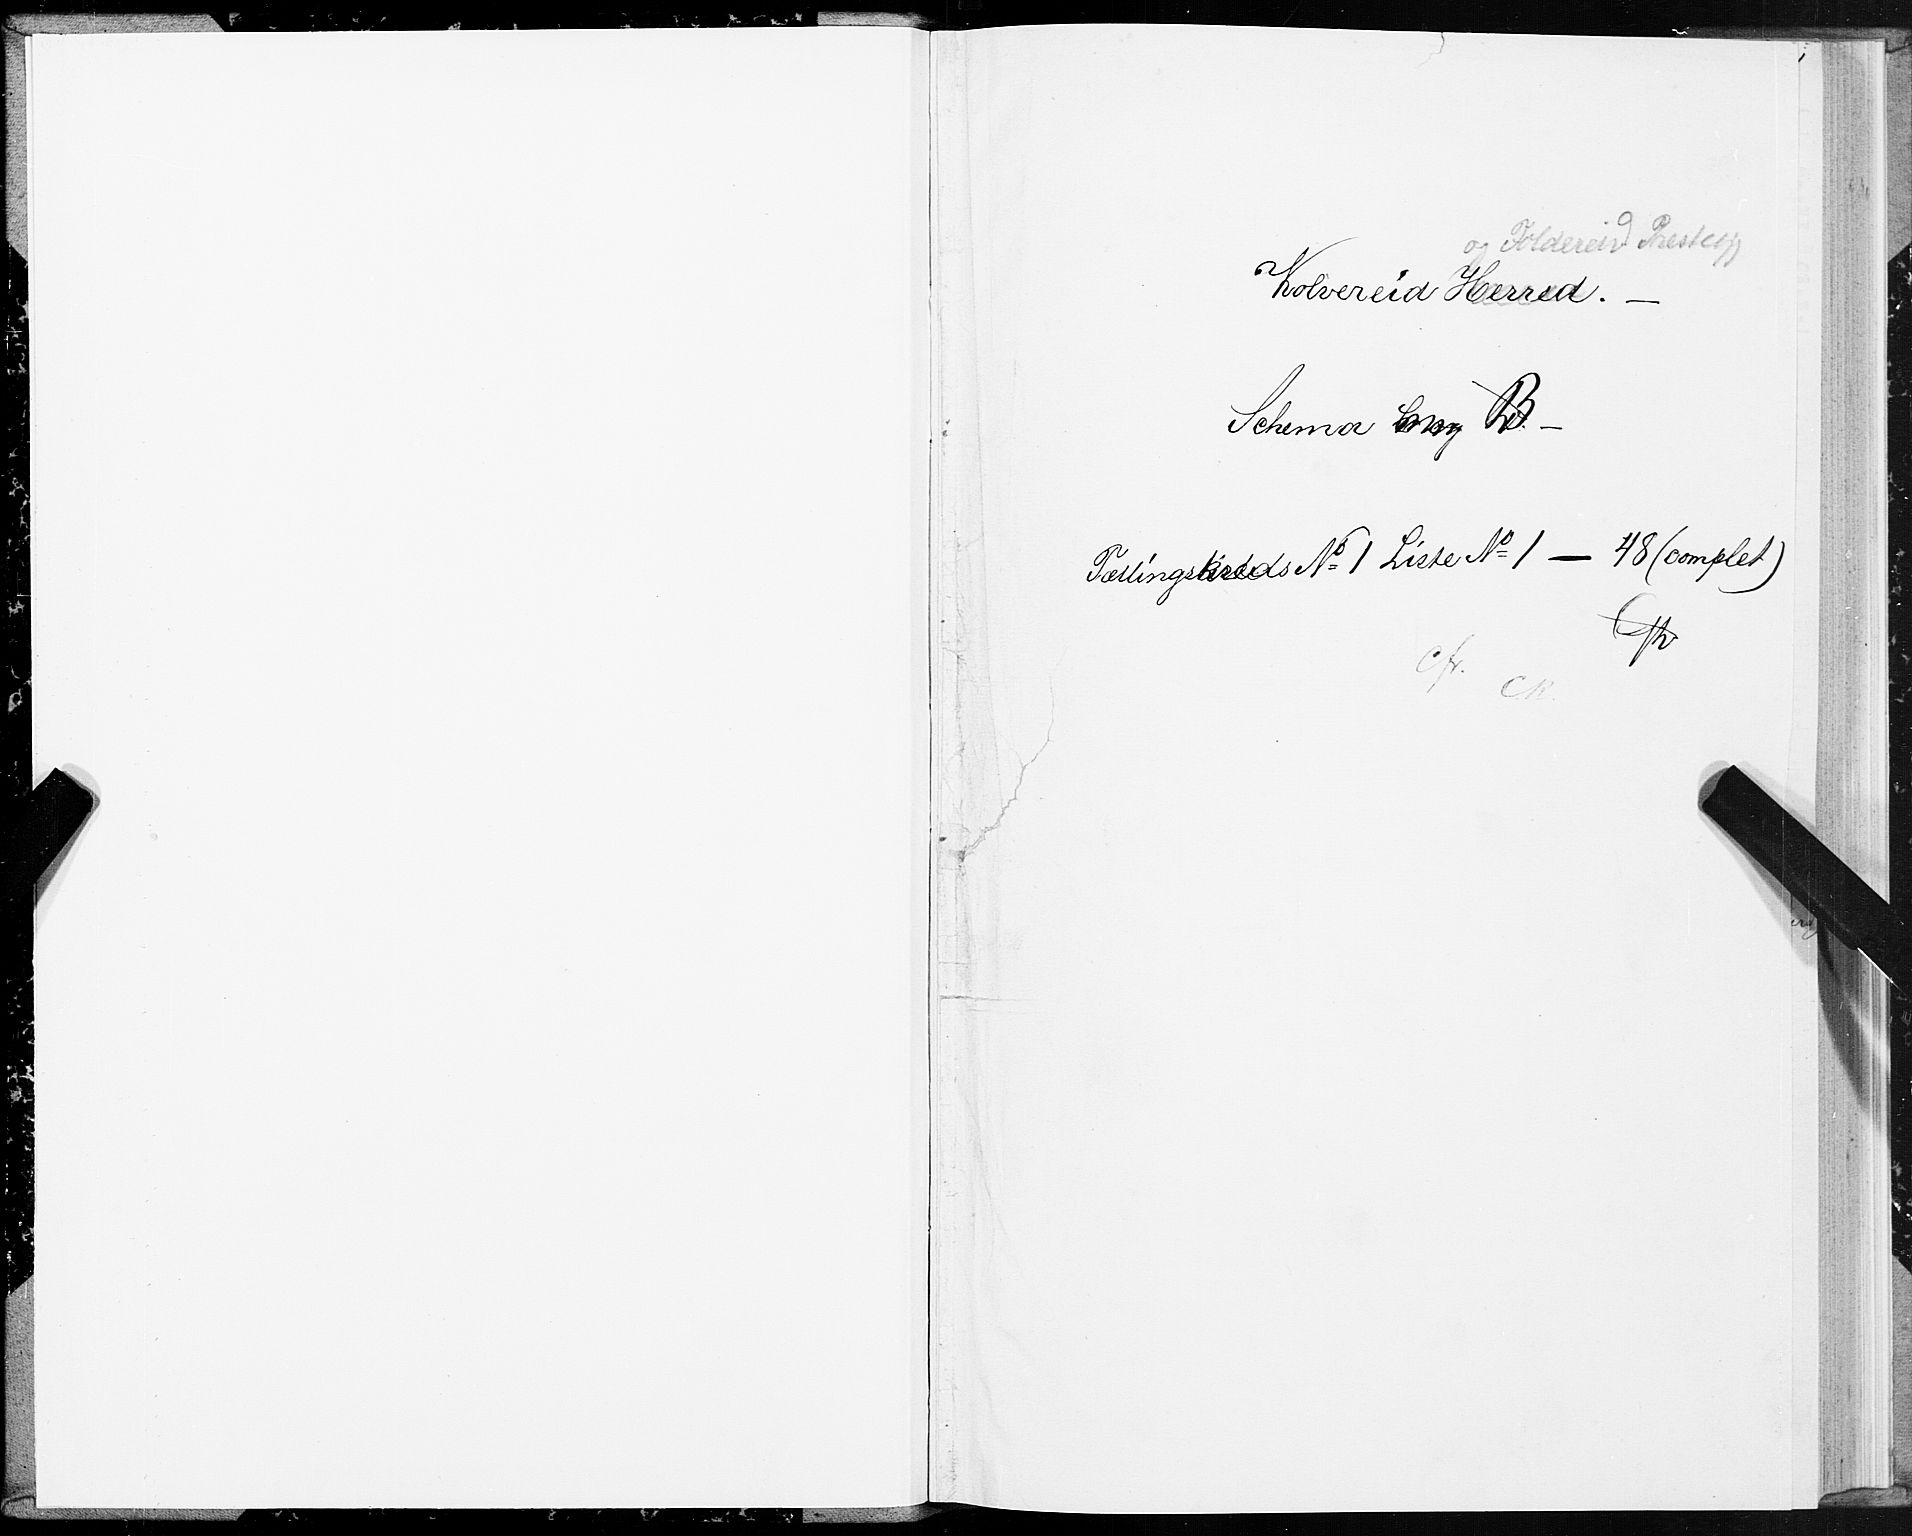 og Foldereid Prestegj
Kolvereid Herred. —
Schema B. —
Tællingskreds No 1 Liste No 1 — 48 (complet)
Cfr.
CK.